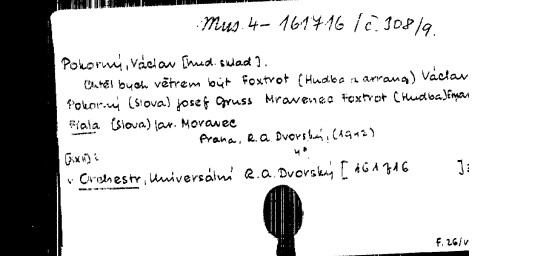 Mus. 4 - 161716 / č. 308/9.
Pokorný, Václav [hud. sklad].
Chtěl bych větrem být Foxtrot (Hudba a arrang) Václav
Pokorný (Slova) Josef Gruss Mravenec Foxtrot (Hudba)
Fiala (Slova) Jar. Moravec
Praha, R.A. Dvorský, (1942)
4°
Orchestr, Universální R.A. Dvorský [161716 ]:
F. 26/